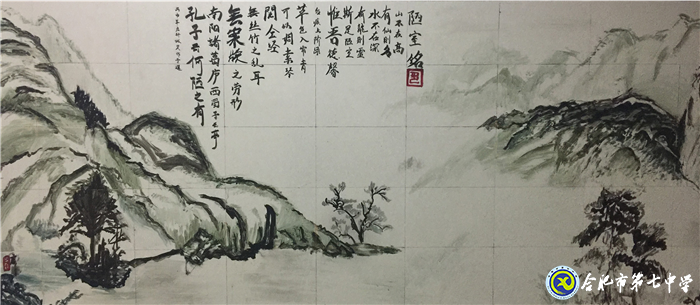 陋室铭
山不在高
有仙则名
水不在深
有龙则灵
斯是陋室
惟吾德馨
台痕上阶绿
草色入帘青
可以调素琴
阅金经
無丝竹之乱耳
無案牍之劳形
南阳诸葛庐西蜀子云亭
孔子云何陋之有
合肥市第七中学